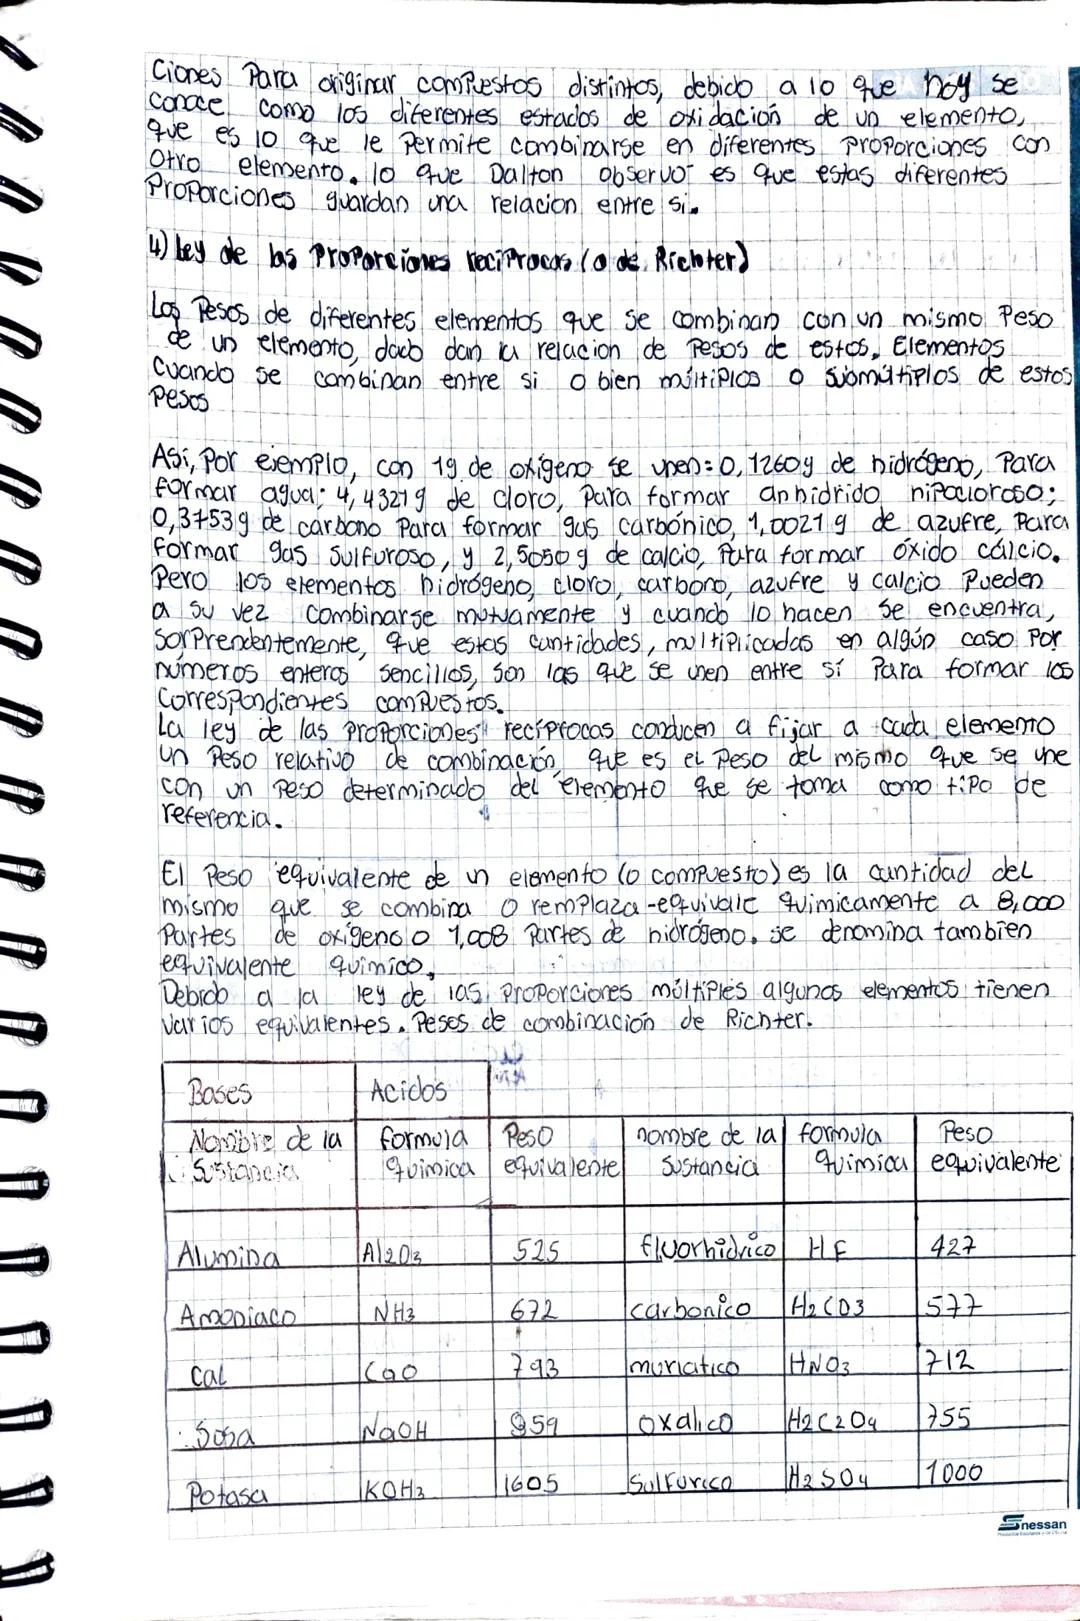 Ciones Para originar compuestos distintos, debido a lo que hoy se
conoce como los diferentes estados de oxidación de un elemento,
que es lo que le Permite combinarse en diferentes proporciones con
Otro elemento. lo que Dalton observo es que estas diferentes
Proporciones guardan una relacion entre si.
4) Ley de las Proporciones reciprocas (o de Richter)
Los Pesos de diferentes elementos que se combinan con un mismo Peso
de un elemento, dado dan la relacion de Pesos de estos, Elementos
Cuando se combinan entre si o bien múltiplos o submúltiplos de estos
Pesos
Asi, Por ejemplo, con 1g de oxígeno se unen: 0,1260g de hidrógeno, Para
formar agua; 4,4321g de cloro, Para formar anhidrido hipocloroso;
0,3753g de carbono Para formar gas carbónico, 1,0021 g de azufre, Para
formar gas sulfuroso, y 2,5050 g de calcio, Para formar óxido cálcico.
Pero los elementos hidrógeno, cloro, carbono, azufre y calcio Pueden
a su vez combinarse mutuamente y cuando lo hacen se encuentra,
sorprendentemente, que estas cantidades, multiplicadas en algún caso Por
números enteros sencillos, son las que se unen entre sí Para formar los
Correspondientes compuestos.
La ley de las proporciones recíprocas conducen a fijar a cada elemento
un Peso relativo de combinación, que es el Peso del mismo que se une
con un Peso determinado del elemento que se toma como tipo de
referencia.
El Peso equivalente de un elemento (o compuesto) es la cantidad del
mismo que se combina o remplaza -equivale quimicamente a 8,000
Partes de oxígeno o 1,008 Partes de hidrógeno. se denomina tambien
equivalente quimico,
Debido a la ley de las proporciones múltiples algunos elementos tienen
varios equivalentes. Pesos de combinación de Richter.
Bases Acidos
Nombre de la formula Peso nombre de la formula Peso
Sustancia quimica equivalente sustancia quimica equivalente
Alumina Al2O3 525 fluorhidrico HF 427
Amoniaco NH3 672 carbonico H2CO3 577
Cal CaO 793 muriatico HNO3 712
Sosa NaOH 859 oxalico H2C2O4 755
Potasa KOH3 1605 Sulfurico H2SO4 1000
nessan